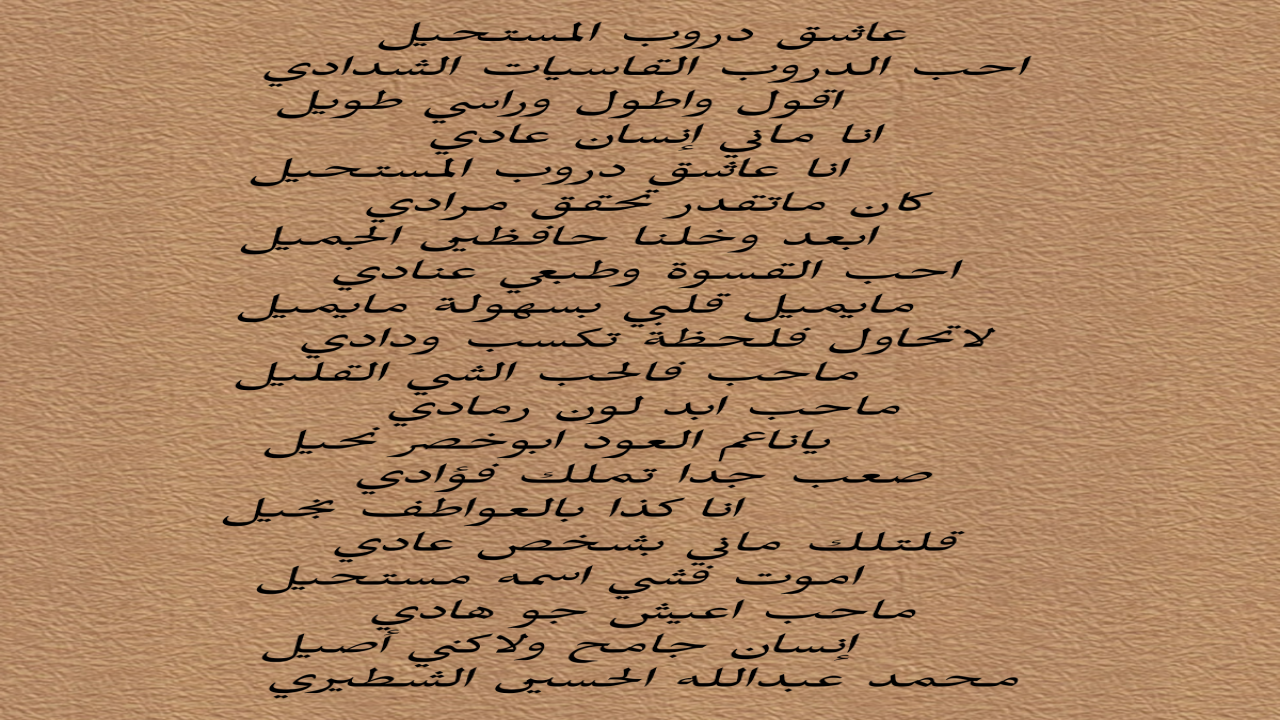 عاشق دروب المستحيل
احب الدروب القاسيات الشدادي
اقول واطول وراسي طويل
انا ماني إنسان عادي
انا عاشق دروب المستحيل
كان ماتقدر تحقق مرادي
ابعد وخلنا حافظين الجميل
احب القسوة وطبعي عنادي
مايميل قلبي بسهولة مايميل
لاتحاول فلحظة تكسب ودادي
ماحب فالحب الشي القليل
ماحب ابد لون رمادي
ياناعم العود ابوخصر نحيل
صعب جدا تملك فؤادي
انا كذا بالعواطف بخيل
قلتلك ماني بشخص عادي
اموت فشي اسمه مستحيل
ماحب اعيش جو هادي
إنسان جامح ولاكني أصيل
محمد عبدالله الحسين الشطيري